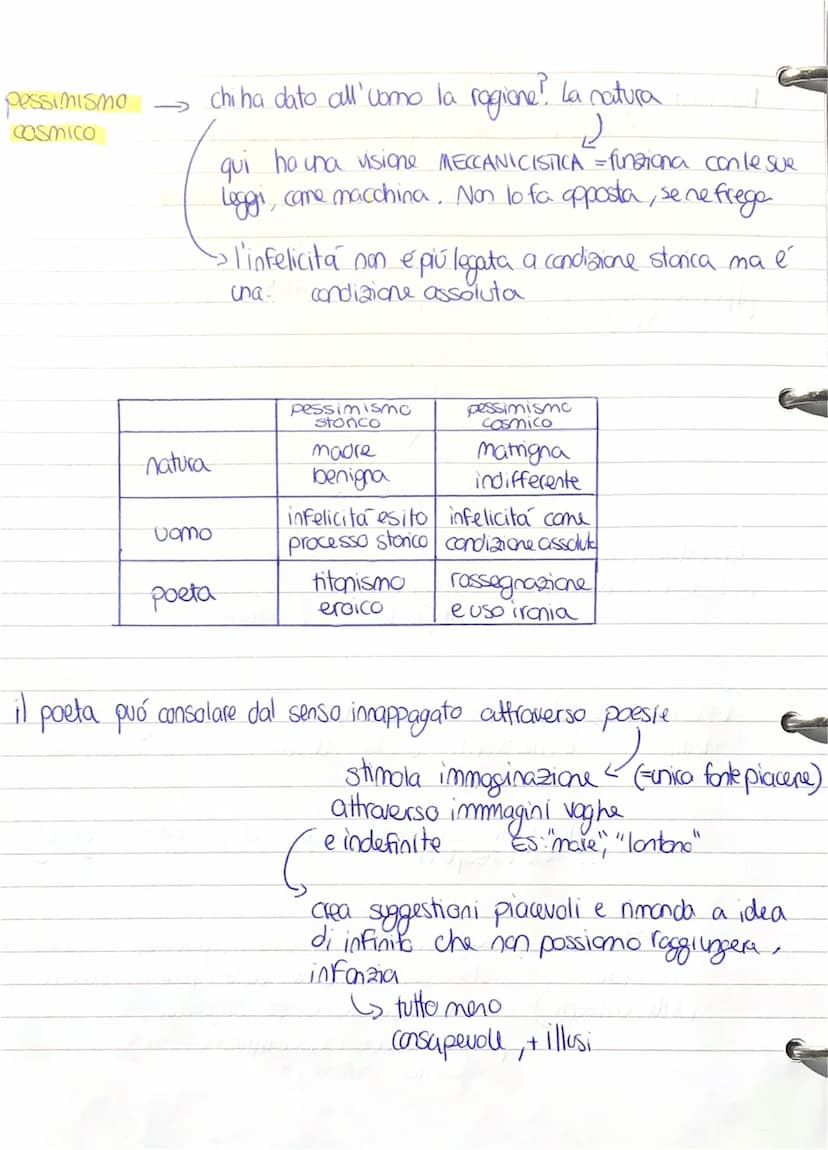 pessimismo → chi ha dato all'uomo la ragione? La natura
cosmico
qui ha una visione MECCANICISTICA = funziona con le sue
leggi, come macchina. Non lo fa apposta, se ne frega
→ l'infelicità non é più legata a condizione storica ma é
una condizione assoluta
pessimismo storico | pessimismo cosmico
natura | madre benigna | matrigna indifferente
uomo | infelicità esito processo storico | infelicità come condizione assoluta
poeta | titanismo eroico | rassegnazione e uso ironia
il poeta puó consolare dal senso innappagato attraverso poesie
stimola immaginazione ← (=unica fonte piacere)
attraverso immmagini vaghe
e indefinite Es: "mare", "lontano"
crea suggestioni piacevoli e rimanda a idea
di infinito che non possiamo raggiungere,
infanzia
↳ tutto meno
consapevole, + illusi